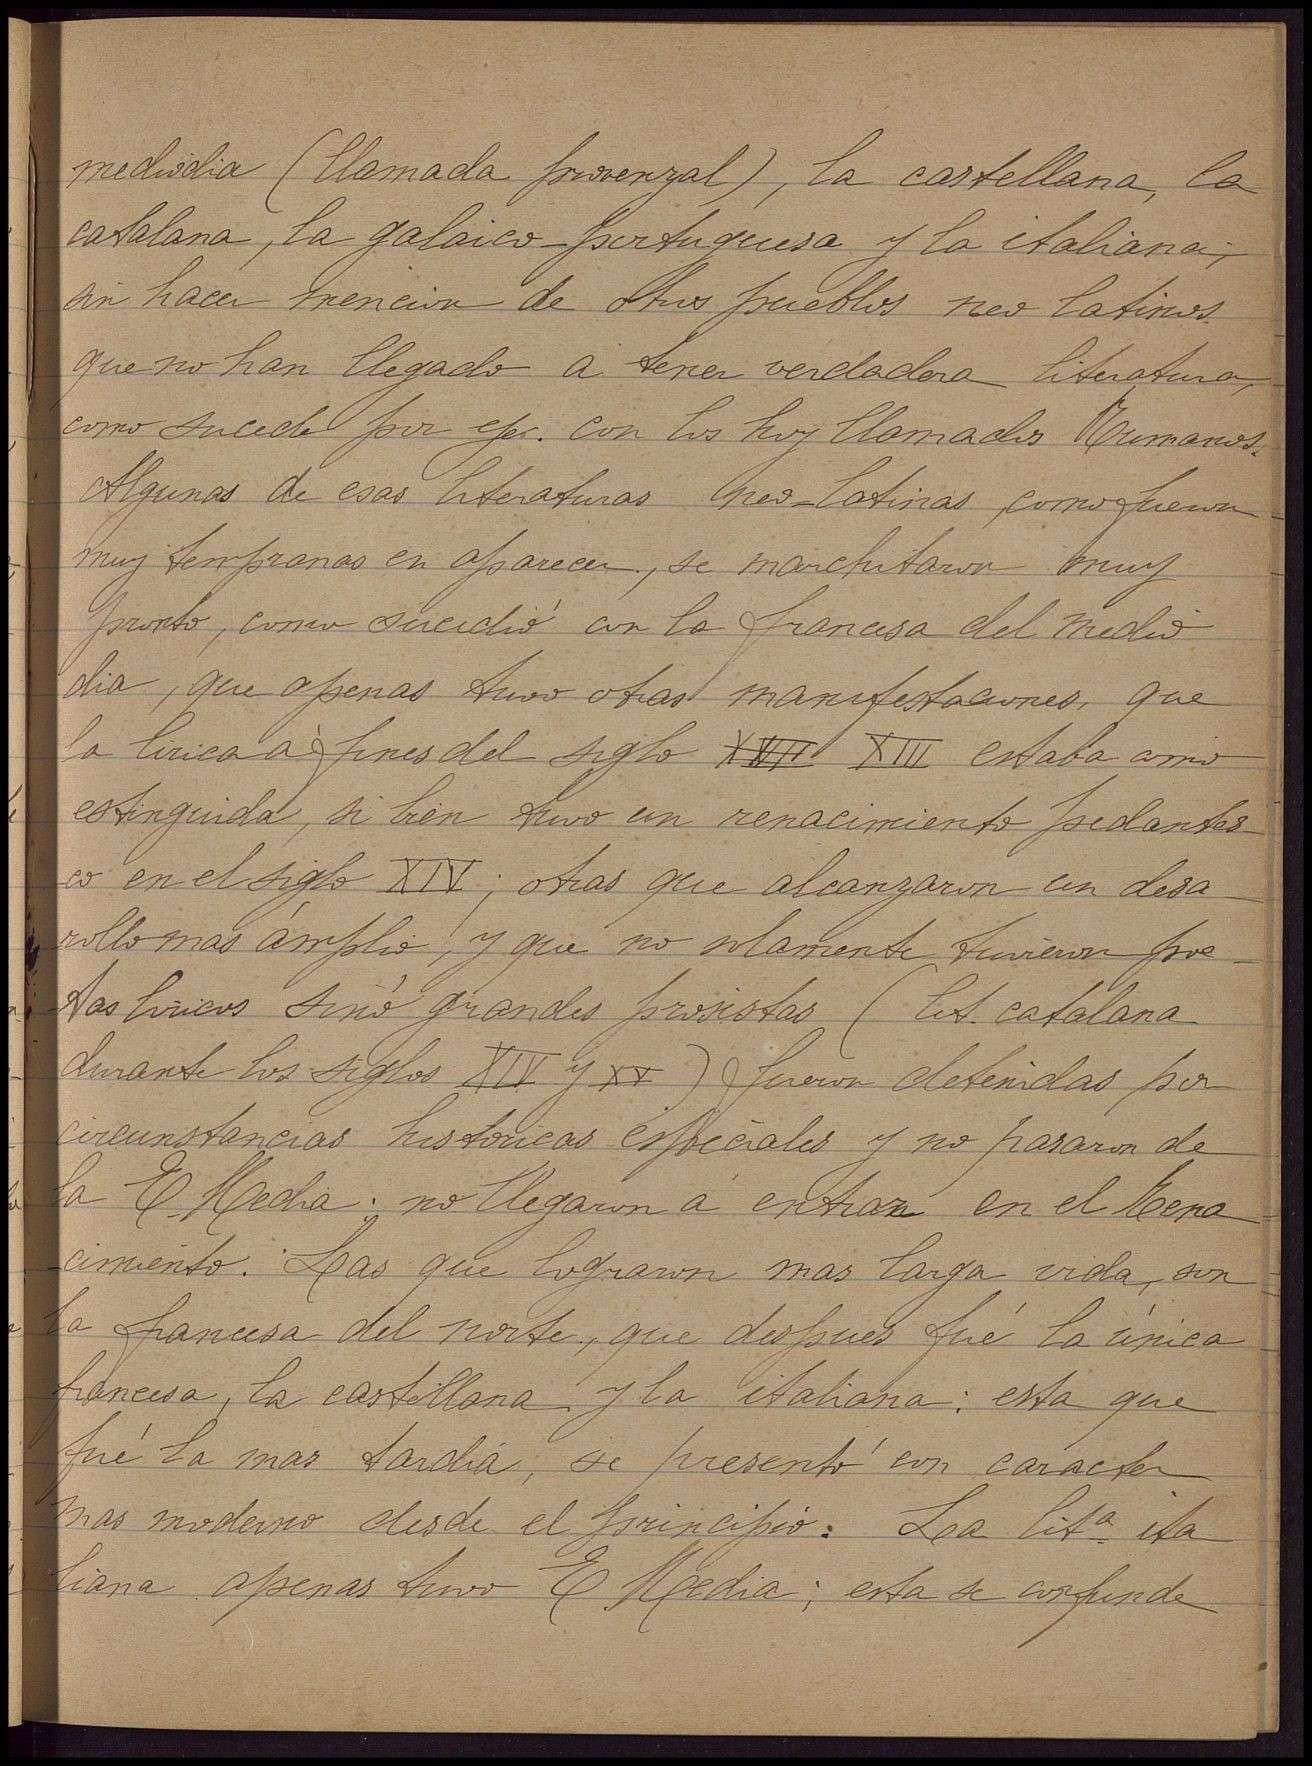 mediodia (llamada provenzal), la castellana, la
catalana, la galaico-portuguesa y la italiana;
sin hacer mencion de otros pueblos neo latinos
que no han llegado a tener verdadera literatura,
como sucede por ej. con los hoy llamados Rumanos.
Algunas de esas literaturas neo-latinas, como fueron
muy tempranas en aparecer, se marchitaron muy
pronto, como sucedió con la francesa del medio
dia, que apenas tuvo otras manifestaciones, que
la lirica a fines del siglo XVII XIII estaba como
estinguida, si bien tuvo un renacimiento pedantes
co en el siglo XIV; otras que alcanzaron un desa
rollo mas ámplio, y que no solamente tuvieron poe
tas lìricos sinó grandes prosistas (lit. catalana
durante los siglos XIV y XV) fueron detenidas por
circunstancias historicas especiales y no pasaron de
la E. Media; no llegaron á entrar en el Rena
cimiento. Las que lograron mas larga vida, son
la francesa del norte, que despues fué la única
francesa, la castellana y la italiana: esta que
fué la mas tardia, se presentó con caracter
mas moderno desde el principio: La litª ita
liana apenas tuvo E. Media; esta se confunde